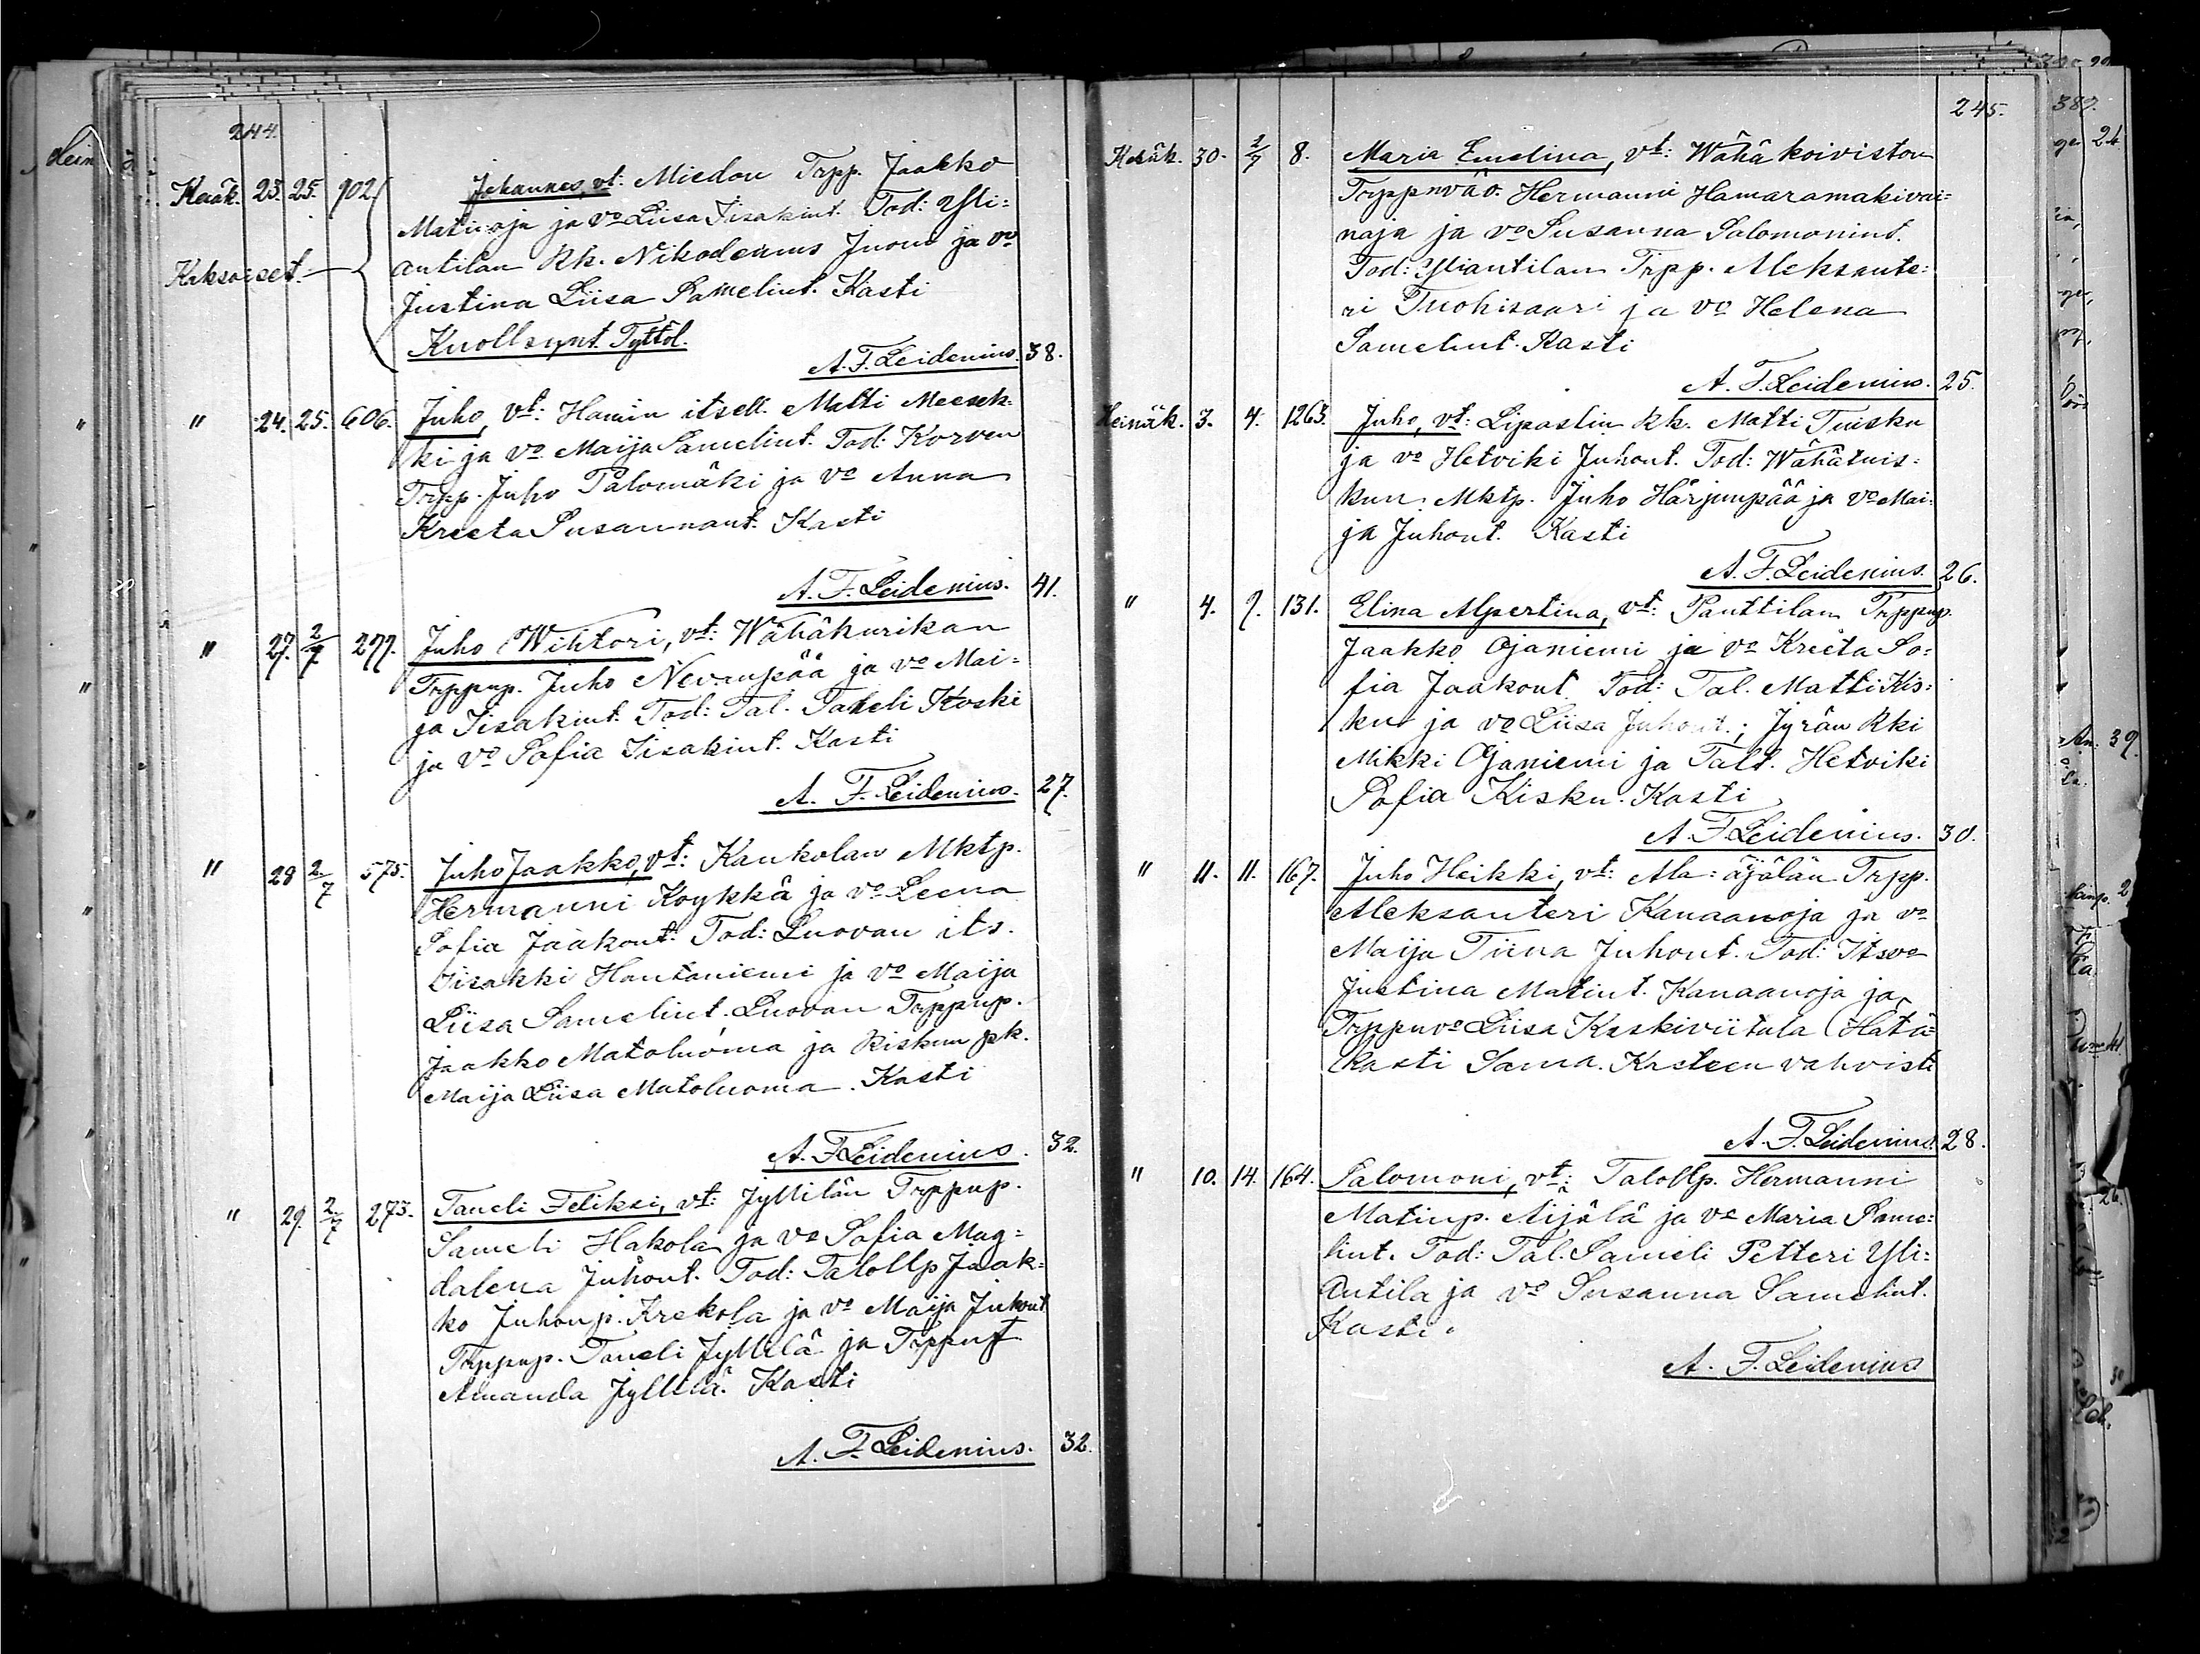 244.
Kesäk. 23. 25. 902. Johannes, vt: Miedon Trpp. Jaakko
Matinoja ja vo Liisa Iisakint. Tod: Yli=
Kaksoiset. antilan Rk. Nikodemus Juonu ja vo
Justina Liisa Samelint. Kasti
Kuoll synt. Tyttöl.
A. F. Leidenius. 38.
" 24. 25. 606. Juho, vt: Hannin itsell. Matti Meesek-
ki ja vo Maija Samelint. Tod: Korven
Trpp. Juho Palomäki ja vo Anna
Kreeta Susannant. Kasti
A. F. Leidenius. 41.
" 27. 2/7 277. Juho Wihtori, vt: Wähäkurikan
Trppup. Juho Nevanpää ja vo Mai=
ja Iisakint. Tod: Tal. Taneli Koski
ja vo Sofia Iisakint. Kasti
A. F. Leidenius. 27.
" 28 2/7 575. Juho Jaakko, vt: Kankolan Mktp.
Hermanni Koykkä ja vo Leena
Sofia Jaakont. Tod: Luovan its.
Iisakki Hautaniemi ja vo Maija
Liisa Samelint. Luovan Trppup.
Jaakko Matoluoma ja Kiskun pk.
Maija Liisa Matoluoma. Kasti
A. F. Leidenius. 32.
" 29 2/7 273. Taneli Feliksi, vt: Jyllilän Trppup.
Sameli Hakola ja vo Sofia Mag=
dalena Juhont. Tod: Talollp Jaak=
ko Juhonp. Krekola ja vo Maija Juhont
Trppup. Taneli Jyllilä ja Trpput
Amanda Jyllilä. Kasti
A. F. Leidenius. 32.
245.
Kesäk. 30. 2/7 8. Maria Emelina, vt: Wähä koiviston
Trppnväv. Hermanni Hamaramakivai=
naja ja vo Susanna Salomonint.
Tod: Yliantilan Trpp. Aleksante=
ri Tuohisaari ja vo Helena
Samelint. Kasti
A. F. Leidenius. 25.
Heinäk. 3. 4. 1263. Juho, vt: Lipastin Rk. Matti Tuisku
ja vo Hetviki Juhont. Tod: Wähätuis=
kun Mktp. Juho Harjunpää ja vo Mai=
ja Juhont. Kasti
A. F. Leidenius. 26.
" 4. 7. 131. Elina Alpertina, vt: Panttilan Trppup.
Jaakko Ojaniemi ja vo Kreeta So=
fia Jaakont. Tod: Tal. Matti Kis=
ku ja vo Liisa Juhont.; Jyrän Rki
Mikki Ojaniemi ja Talt. Hetviki
Sofia Kisku. Kasti
A. F. Leidenius. 30.
" 11. 11. 167. Juho Heikki, vt: Ala=äijälän Trpp.
Aleksanteri Kanaanoja ja vo
Maija Tiina Juhont. Tod: Itsvo
Justina Matint. Kanaanoja ja
Trppnvo Liisa Kaskiviitala (Hätä=
kasti Sama. Kasteen vahvisti
A. F. Leidenius. 28.
" 10. 14. 164. Salomoni, vt: Talollp. Hermanni
Matinp. Äijälä ja vo Maria Same=
lint. Tod: Tal. Sameli Petteri Yli=
antila ja vo Susanna Samelint.
Kasti.
A. F. Leidenius